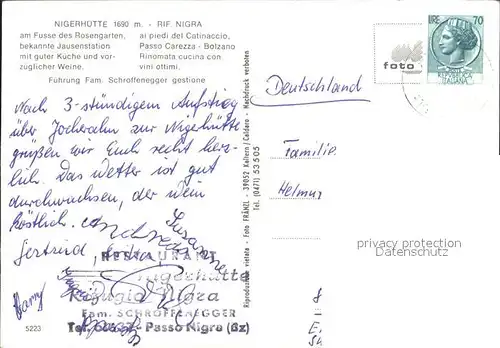 NIGERHÜTTE 1690 m. - RIF. NIGRA
am Fusse des Rosengarten,
bekannte Jausenstation
mit guter Küche und vor-
züglicher Weine.
ai piedi del Catinaccio,
Passo Carezza - Bolzano
Rinomata cucina con
vini ottimi.
Führung Fam. Schroffenegger gestione
Nach 3-stündigem Aufstieg
über Jocheralm zur Nigerhütte
grüßen wir Euch recht herz-
lich. Das Wetter ist gut
durchwachsen, der Wein
köstlich.
Andreas
Susanne
Gertrud,
Harry
RESTAURANT
Nigerhütte
Rifugio Nigra
Fam. SCHROFFENEGGER
Passo Nigra (Bz)
5223
Riproduzione vietata - Foto FRÄNZL - 39052 Kaltern/Caldaro - Nachdruck verboten
Tel. (0471) 53505
foto
LIRE 70
REPUBBLICA
ITALIANA
Deutschland
Familie
Helmut
privacy protection
Datenschutz
8
E.